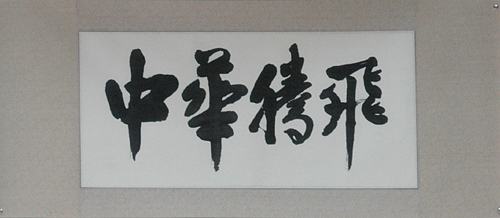 中華騰飛